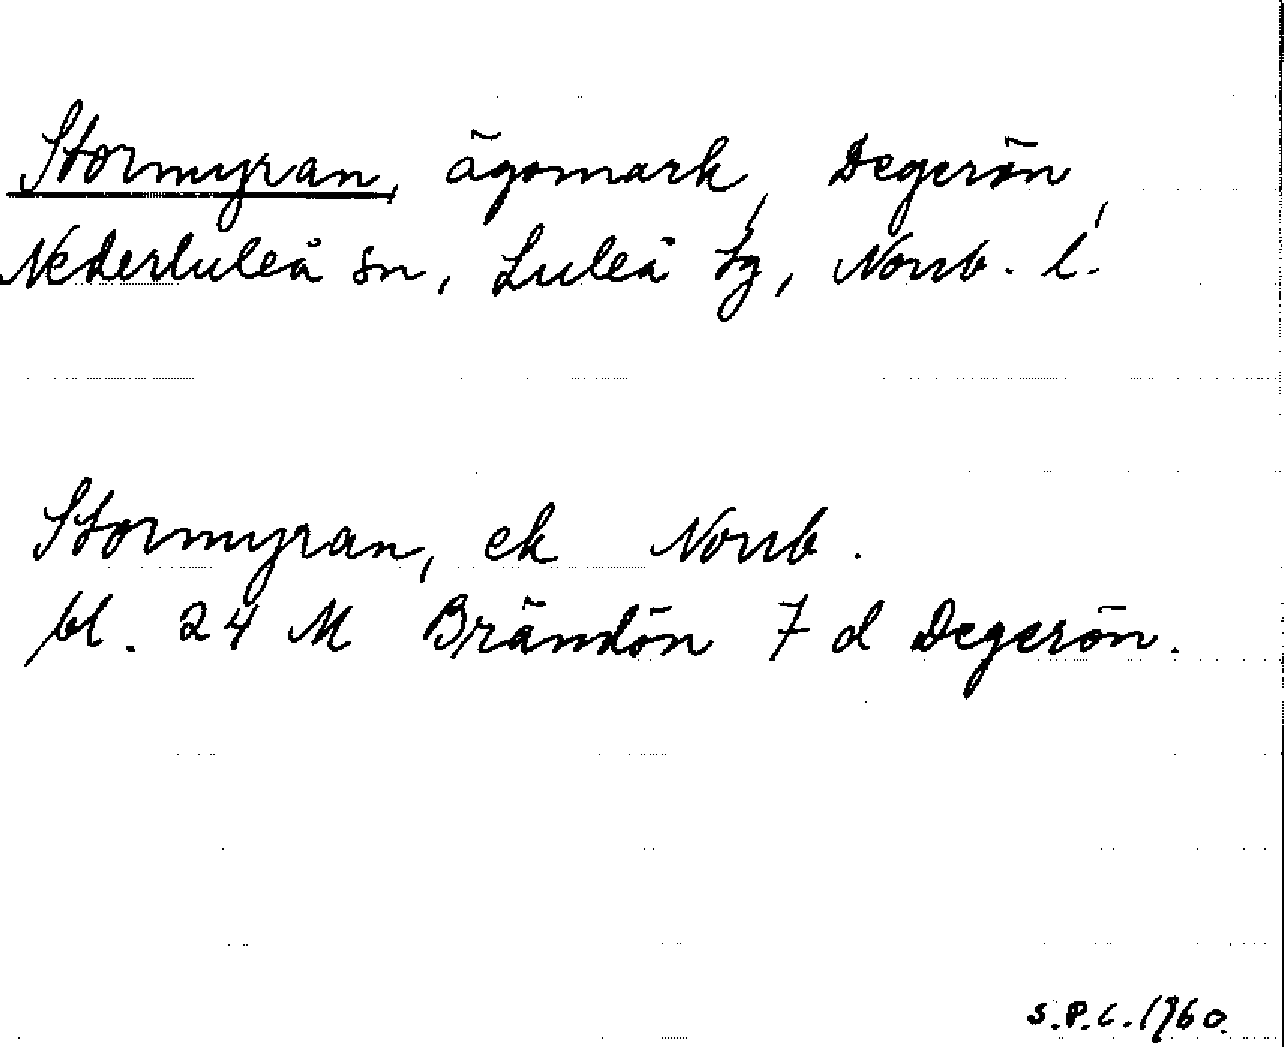 Stormyran, ägomark, Degerön,
Nederluleå sn, Luleå tg, Norrb. l.
Stormyran, ek Norrb.
bl. 24 M Brändön 7 d Degerön.
S.P.C. 1960.